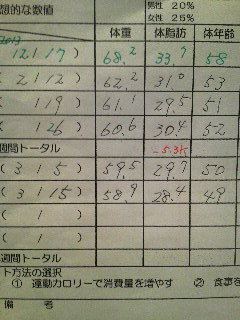 想的な数値
男性 20%
女性 25%
体重 体脂肪 体年齢
12 / 17 ) 68.2 33.7 58
( 2 / 12 ) 62.2 31.0 53
( 1 / 9 ) 61.1 29.5 51
( 1 26 ) 60.6 30.4 52
週間トータル -5.3K
( 3 / 5 ) 59.5 29.7 50
( 3 / 15 ) 58.9 28.4 49
( / )
( / )
週間トータル
ト方法の選択
① 運動カロリーで消費量を増やす ② 食事を
備 考